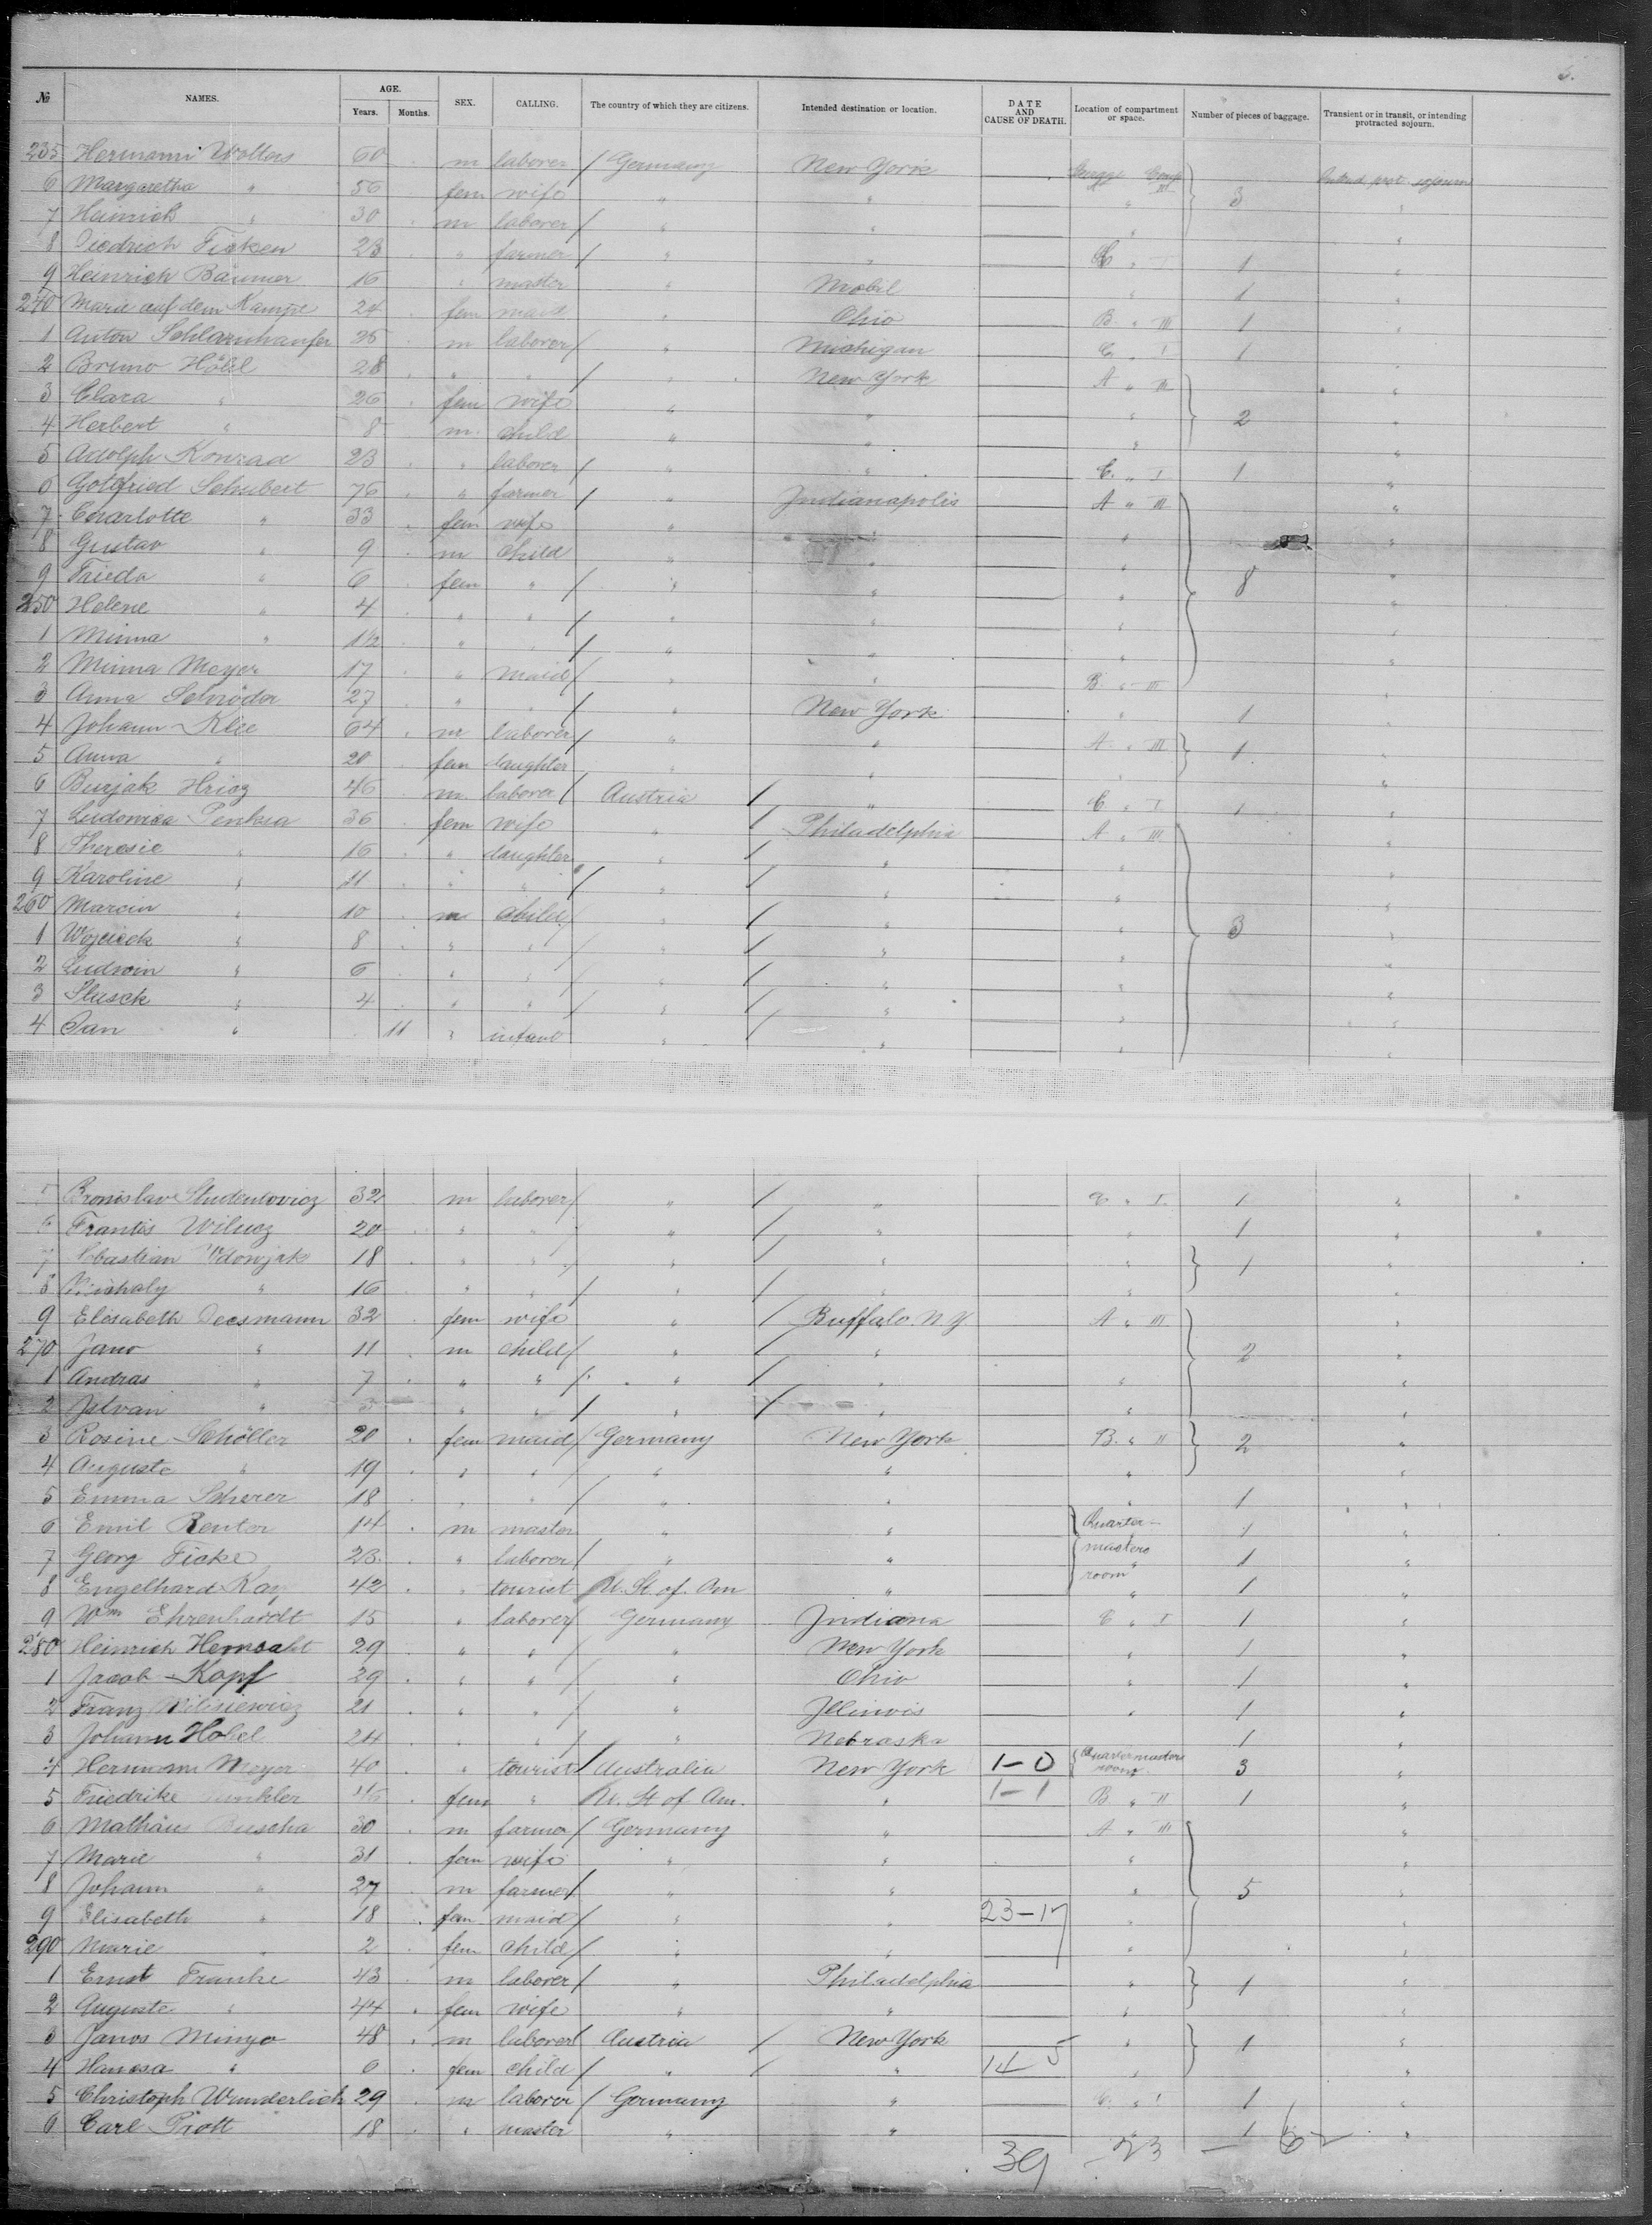 3.
№ NAMES. AGE. Years. Months. SEX. CALLING. The country of which they are citizens. Intended destination or location. DATE AND CAUSE OF DEATH. Location of compartment or space. Number of pieces of baggage. Transient or in transit, or intending protracted sojourn.
235 Hermann Wolters 60 m laborer / Germany New York III 3 sojourn
6 Margaretha " 56 fem wife " " "
7 Heinrich " 30 m laborer / " " " "
8 Diedrich Ficken 23 " farmer / " " C " I 1 "
9 Heinrich Bäumer 16 " master " Mobil " 1 "
240 Marie auf dem Kampe 24 fem maid " Ohio B " III 1 "
1 Anton Schlarnhaufer 25 m laborer / " Michigan C " I 1
2 Bruno Hölel 28 " " / " New York A " III 2 "
3 Clara " 26 fem wife " " " "
4 Herbert " 8 m. child " " " "
5 Adolph Konrad 23 " laborer / " " C. " I 1 "
6 Gottfried Schubert 76 " farmer / " Indianapolis A " III 8 "
7 Charlotte " 33 fem wife " " " "
8 Gustav " 9 m child " " " "
9 Frieda " 6 fem " / " " " "
250 Helene " 4 " " / " " " "
1 Minna " 1½ " " / " " " "
2 Minna Meyer 17 " maid / " " B " III "
3 Anna Schröder 27 " " / " New York " 1 "
4 Johann Klee 64 m laborer / " " A " III 1 "
5 Anna " 20 fem daughter " " " "
6 Burjak Hricz 46 m. laborer / Austria / " C " I 1 "
7 Ludowica Penksa 36 fem wife " / Philadelphia A " III 3 "
8 Theresie " 16 " daughter " / " " "
9 Karoline " 11 " " / " / " " "
260 Marcin " 10 m child / " / " " "
1 Wojcieck " 8 " " / " / " " "
2 Ludwin " 6 " " / " / " " "
3 Stasck " 4 " " / " / " " "
4 Jan " 11 " infant " / " " "
Bronislave Studentovicz 32 m laborer / " / " C " I 1 "
6 Frantis Wilucz 20 " " / " / " " 1 "
7 Sebastian Wdowjak 18 " " / " / " " 1 "
8 Michaly " 16 " " / " / " " "
9 Elisabeth Decsmann 32 fem wife " / Buffalo. N.Y. A " III 2 "
270 Jano " 11 m child / " / " "
1 Andras " 7 " " / " / " " "
2 Istvan " 5 " " / " / " " "
3 Rosine Schöller 20 fem maid / Germany New York B. " II 2 "
4 Auguste " 19 " " / " " " "
5 Emma Scherer 18 " " / " " " 1 "
6 Emil Renter 14 m master " " Quarter- 1 "
7 Georg Ficke 23. " laborer / " " masters " 1 "
8 Engelhard Kay 42 " tourist U. St. of. Am " room " 1 "
9 Wm Ehrenhardt 15 " laborer / Germany Indiana C " I 1 "
280 Heinrich Hemsaht 29 " " / " New York " 1 "
1 Jacob Kopf 29 " " / " Ohio " 1 "
2 Franz Milisiewicz 21 " " / " Illinois " 1 "
3 Johann Hobel 24 " " / " Nebraska 1 "
4 Hermann Meyer 40 " tourist / Australia New York 1-0 Quartermasters room. 3 "
5 Friedrike 46 fem " U. St of Am. " 1-1 B " II 1 "
6 Mathäus Buscha 30 m farmer / Germany " A " III 5 "
7 Marie " 31 fem wife " " " "
8 Johann " 27 m farmer / " " " "
9 Elisabeth " 18 fem maid / " " 23-17 " "
290 Marie " 2 fem child / " " " "
1 Ernst Franke 43 m laborer / " Philadelphia " 1 "
2 Auguste " 44 fem wife " " " "
3 Janos Minyo 48 m laborer / Austria / New York " 1 "
4 Hanesa " 6 fem child / " / " 14 5 " "
5 Christoph Wunderlich 29 m laborer / Germany " C. " I 1 "
6 Carl Prott 18 " master " " " 1 "
39 - 23 - 62